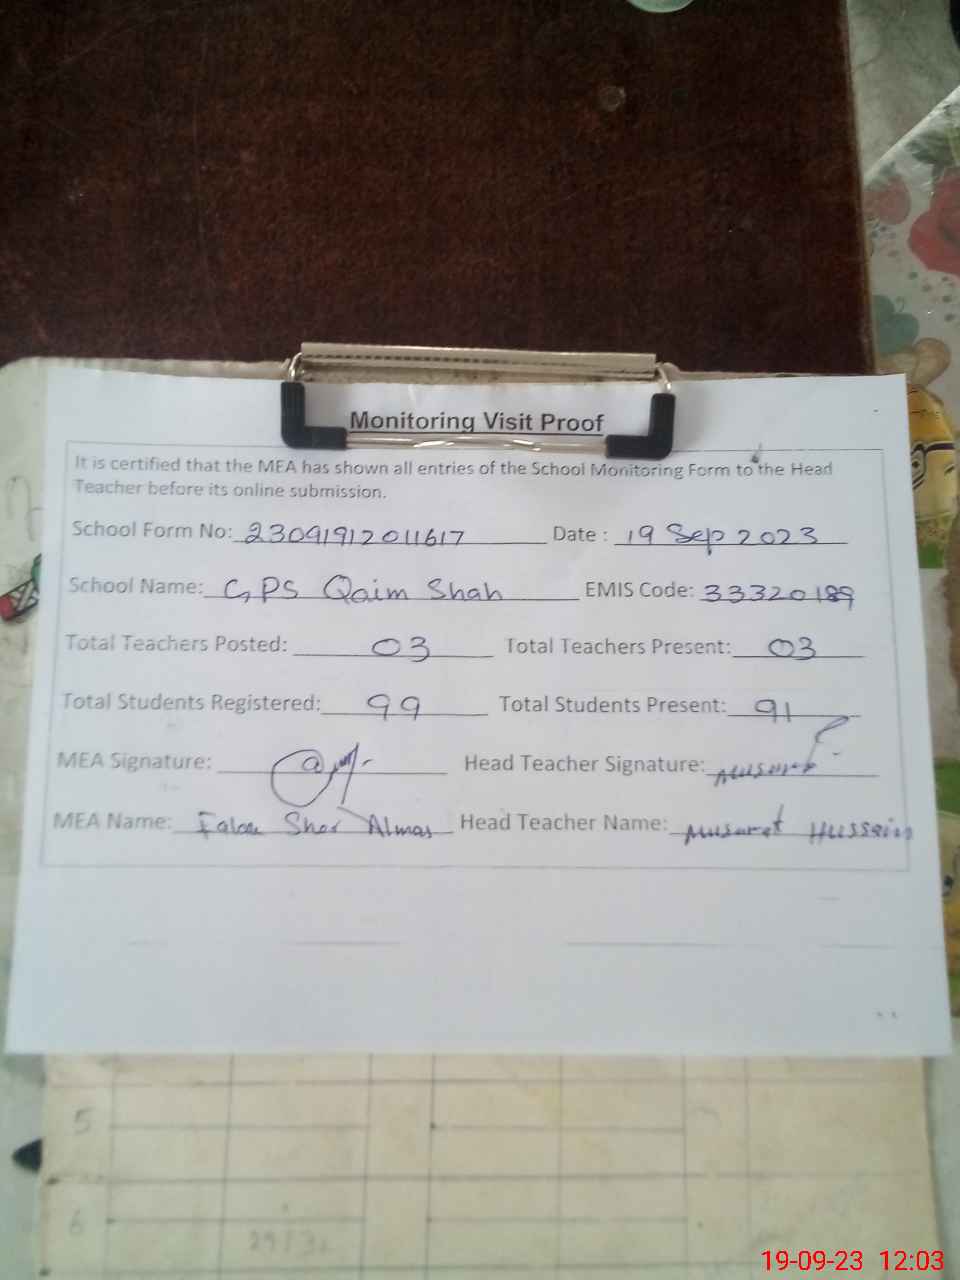 Monitoring Visit Proof
It is certified that the MEA has shown all entries of the School Monitoring Form to the Head
Teacher before its online submission.
School Form No: 23091912011617 Date : 19 Sep 2023
School Name: GPS Qaim Shah EMIS Code: 33320189
Total Teachers Posted: 03 Total Teachers Present: 03
Total Students Registered: 99 Total Students Present: 91
MEA Signature: Head Teacher Signature: Musarat
MEA Name: Sher Almas Head Teacher Name: Musarat Hussain
5
6
19-09-23 12:03